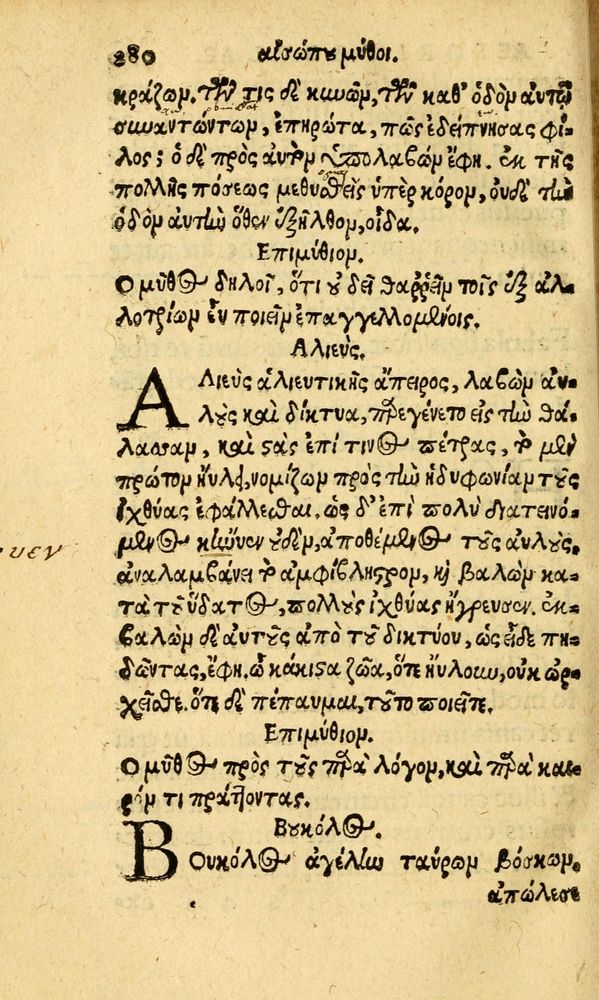 280 αἰσώπου μῦθοι.
κράζων. τῶν τις δὲ κυνῶν, τῶν καθ' ὁδὸν αὐτῷ
συναντώντων, ἐπηρώτα, πῶς ἐδείπνησας φί-
λος; ὁ δὲ πρὸς αὐτὸν ὑπολαβὼν ἔφη. ἐκ τῆς
πολλῆς πόσεως μεθυσθεὶς ὑπὲρ κόρον, οὐδὲ τὴν
ὁδὸν αὐτὴν ὅθεν ἐξῆλθον, οἶδα.
Επιμύθιον.
Ο μῦθος δηλοῖ, ὅτι οὐ δεῖ θαῤῥεῖν τοῖς ἐξ ἀλ-
λοτρίων εὖ ποιεῖν ἐπαγγελλομένοις.
Αλιεύς.
Αλιεὺς ἁλιευτικῆς ἄπειρος, λαβὼν αὐ-
λοὺς καὶ δίκτυα, παρεγένετο εἰς τὴν θά-
λασσαν, καὶ στὰς ἐπί τινος πέτρας, τὸ μὲν
πρῶτον ηὔλει, νομίζων πρὸς τὴν ἡδυφωνίαν τοὺς
ἰχθύας ἐφάλλεσθαι. ὡς δ' ἐπὶ πολὺ διατεινό-
μενος κίνυεν οὐδὲν, ἀποθέμενος τοὺς αὐλοὺς,
υεν
ἀναλαμβάνει τὸ ἀμφίβληστρον, καὶ βαλὼν κα-
τὰ τοῦ ὕδατος, πολλοὺς ἰχθύας ἤγρευσεν. ἐκ-
βαλὼν δὲ αὐτοὺς ἀπὸ τοῦ δικτύου, ὡς εἶδε πη-
δῶντας, ἔφη. ὦ κάκιστα ζῶα, ὅτε ηὔλουν, οὐκ ὠρ-
χεῖσθε. ὅτε δὲ πέπαυμαι, τοῦτο ποιεῖτε.
Επιμύθιον.
Ο μῦθος πρὸς τοὺς παρὰ λόγον, καὶ παρὰ και-
ρόν τι πράττοντας.
Βουκόλος.
Βουκόλος ἀγέλην ταύρων βόσκων,
ἀπώλεσε